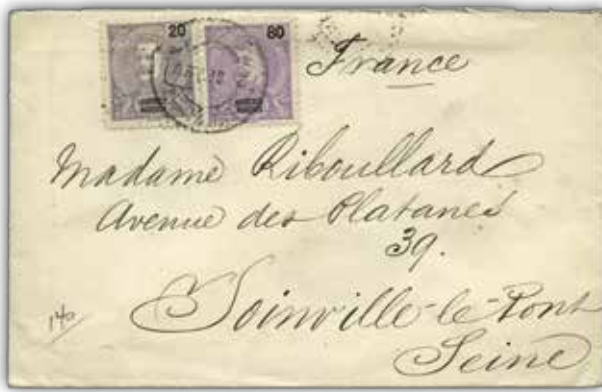 20 80
France
Madame Riboullard
Avenue des Platanes
39.
Joinville-le-Pont
Seine
140